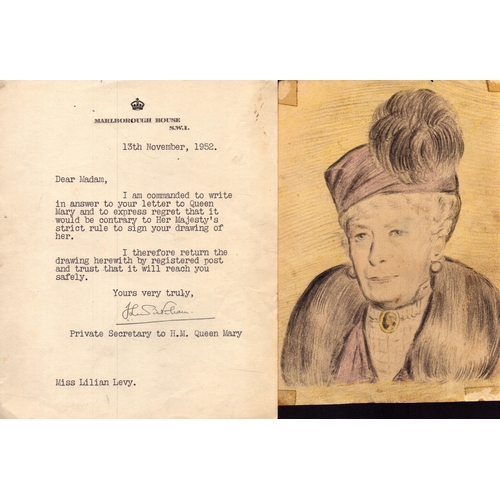 MARLBOROUGH HOUSE
S.W.1.
13th November, 1952.
Dear Madam,
I am commanded to write
in answer to your letter to Queen
Mary and to express regret that it
would be contrary to Her Majesty's
strict rule to sign your drawing of
her.
I therefore return the
drawing herewith by registered post
and trust that it will reach you
safely.
Yours very truly,
Private Secretary to H.M. Queen Mary
Miss Lilian Levy.